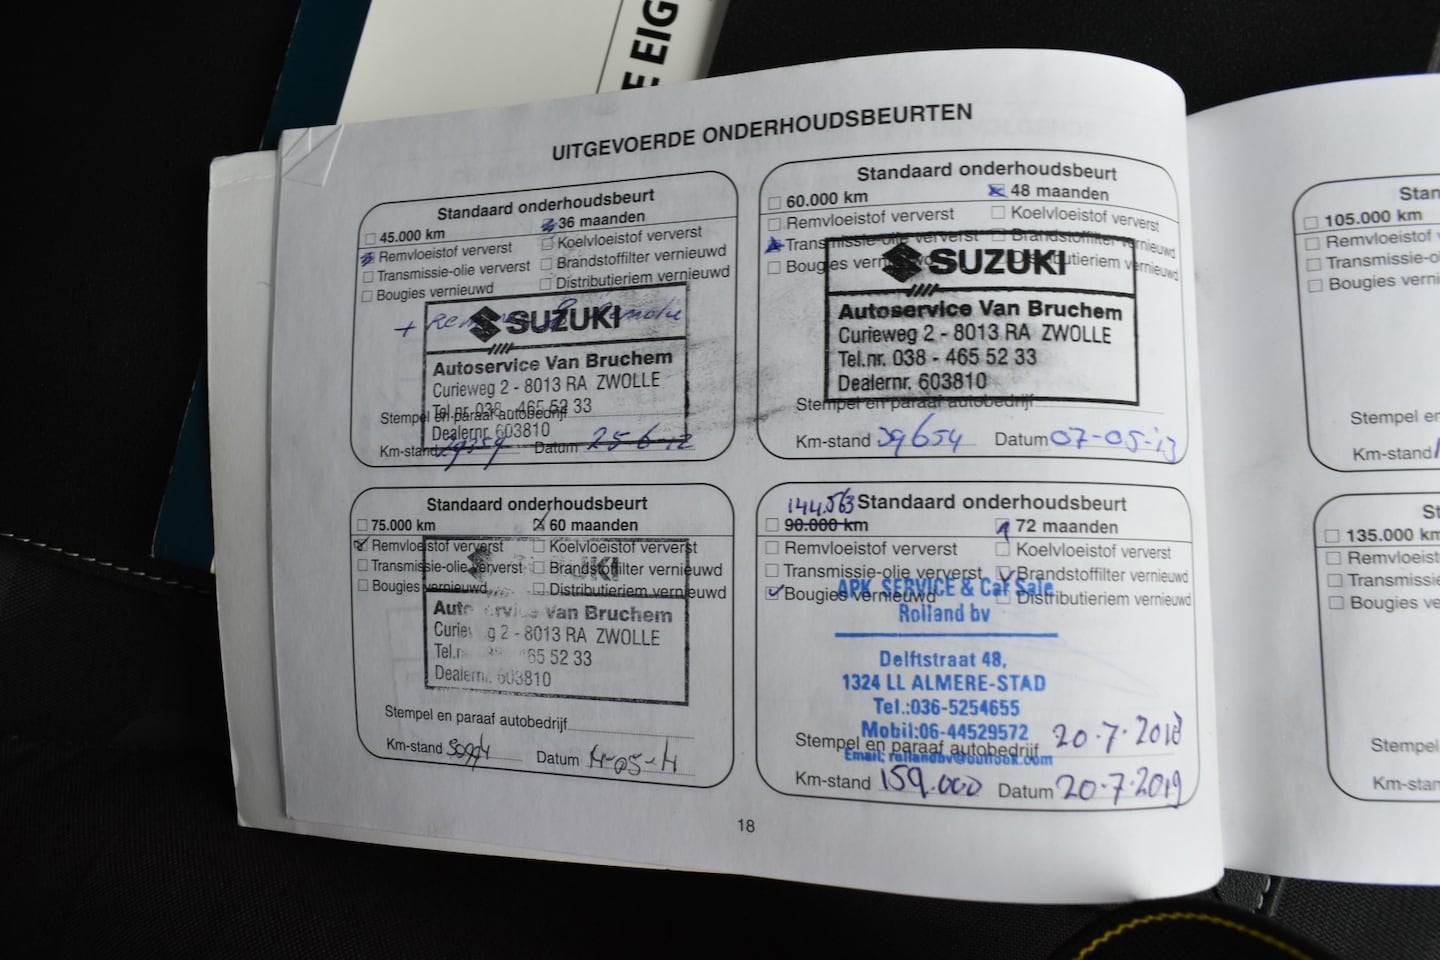 E EIG
UITGEVOERDE ONDERHOUDSBEURTEN
Standaard onderhoudsbeurt
45.000 km 36 maanden
Remvloeistof ververst Koelvloeistof ververst
Transmissie-olie ververst Brandstoffilter vernieuwd
Bougies vernieuwd Distributieriem vernieuwd
+
SUZUKI
Autoservice Van Bruchem
Curieweg 2 - 8013 RA ZWOLLE
Tel.nr. 038 - 465 52 33
Stempel en paraaf autobedrijf
Dealernr. 603810
Km-stand Datum 25-6-12
Standaard onderhoudsbeurt
60.000 km 48 maanden
Remvloeistof ververst Koelvloeistof ververst
Transmissie-olie ververst Brandstoffilter vernieuwd
Bougies vernieuwd Distributieriem vernieuwd
SUZUKI
Autoservice Van Bruchem
Curieweg 2 - 8013 RA ZWOLLE
Tel.nr. 038 - 465 52 33
Dealernr. 603810
Stempel en paraaf autobedrijf
Km-stand 39654 Datum 07-05-'13
Standaard onderhoudsbeurt
75.000 km 60 maanden
Remvloeistof ververst Koelvloeistof ververst
Transmissie-olie ververst Brandstoffilter vernieuwd
Bougies vernieuwd Distributieriem vernieuwd
SUZUKI
Autoservice Van Bruchem
Curieweg 2 - 8013 RA ZWOLLE
Tel.nr. 038 - 465 52 33
Dealernr. 603810
Stempel en paraaf autobedrijf
Km-stand Datum
144.563 Standaard onderhoudsbeurt
90.000 km 72 maanden
Remvloeistof ververst Koelvloeistof ververst
Transmissie-olie ververst Brandstoffilter vernieuwd
Bougies vernieuwd Distributieriem vernieuwd
APK SERVICE & Car Sale
Rolland bv
Delftstraat 48,
1324 LL ALMERE-STAD
Tel.:036-5254655
Mobil:06-44529572
Stempel en paraaf autobedrijf 20-7-2018
Email: rollandbv@outlook.com
Km-stand 159.000 Datum 20-7-2019
18
Stan
105.000 km
Remvloeistof
Transmissie-o
Bougies verni
Stempel e
Km-stand
St
135.000 km
Remvloeist
Transmissie
Bougies ve
Stempel
Km-stan